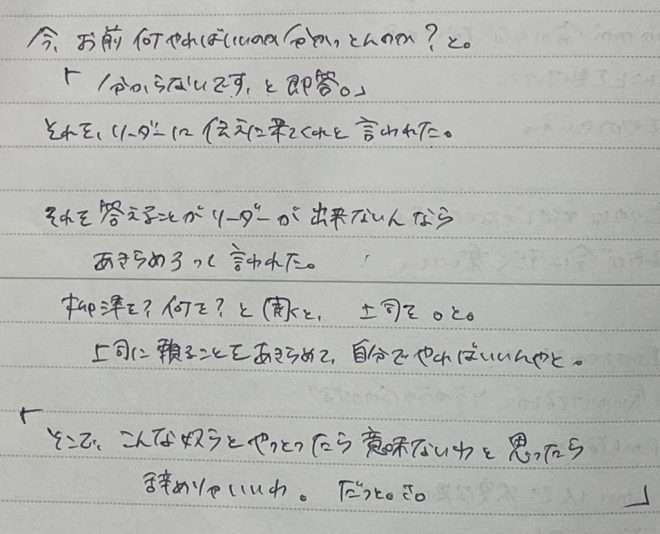 今、お前何やればいいのか分かっとんのか？と。
「分からないです、と即答。」
それを、リーダーに伝えに来てくれと言われた。
それを答えることがリーダーが出来ないんなら
あきらめろって言われた。
何を？と聞くと、上司を。と。
上司に頼ることをあきらめて、自分でやればいいんやと。
「そこで、こんな奴らとやっとったら意味ないわと思ったら
辞めりゃいいわ。だっと。さ。」